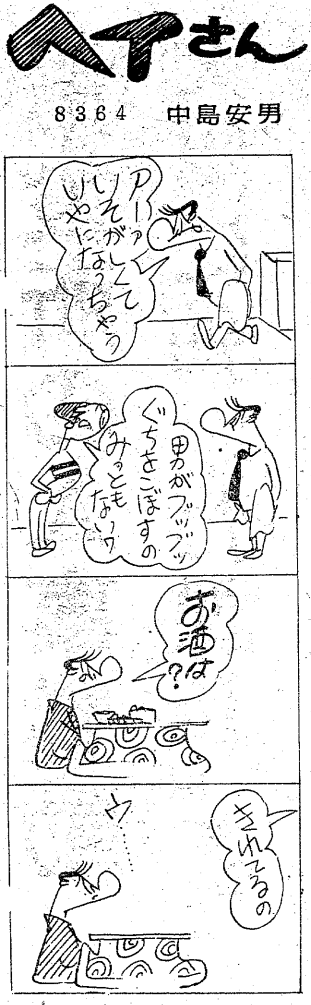 ヘイさん
8364 中島安男
アーァ
いそがしくて
いやになっちゃう
男がブツブツ
ぐちをこぼすの
みっとも
ないワ
お酒は?
きれてるの
ウ……